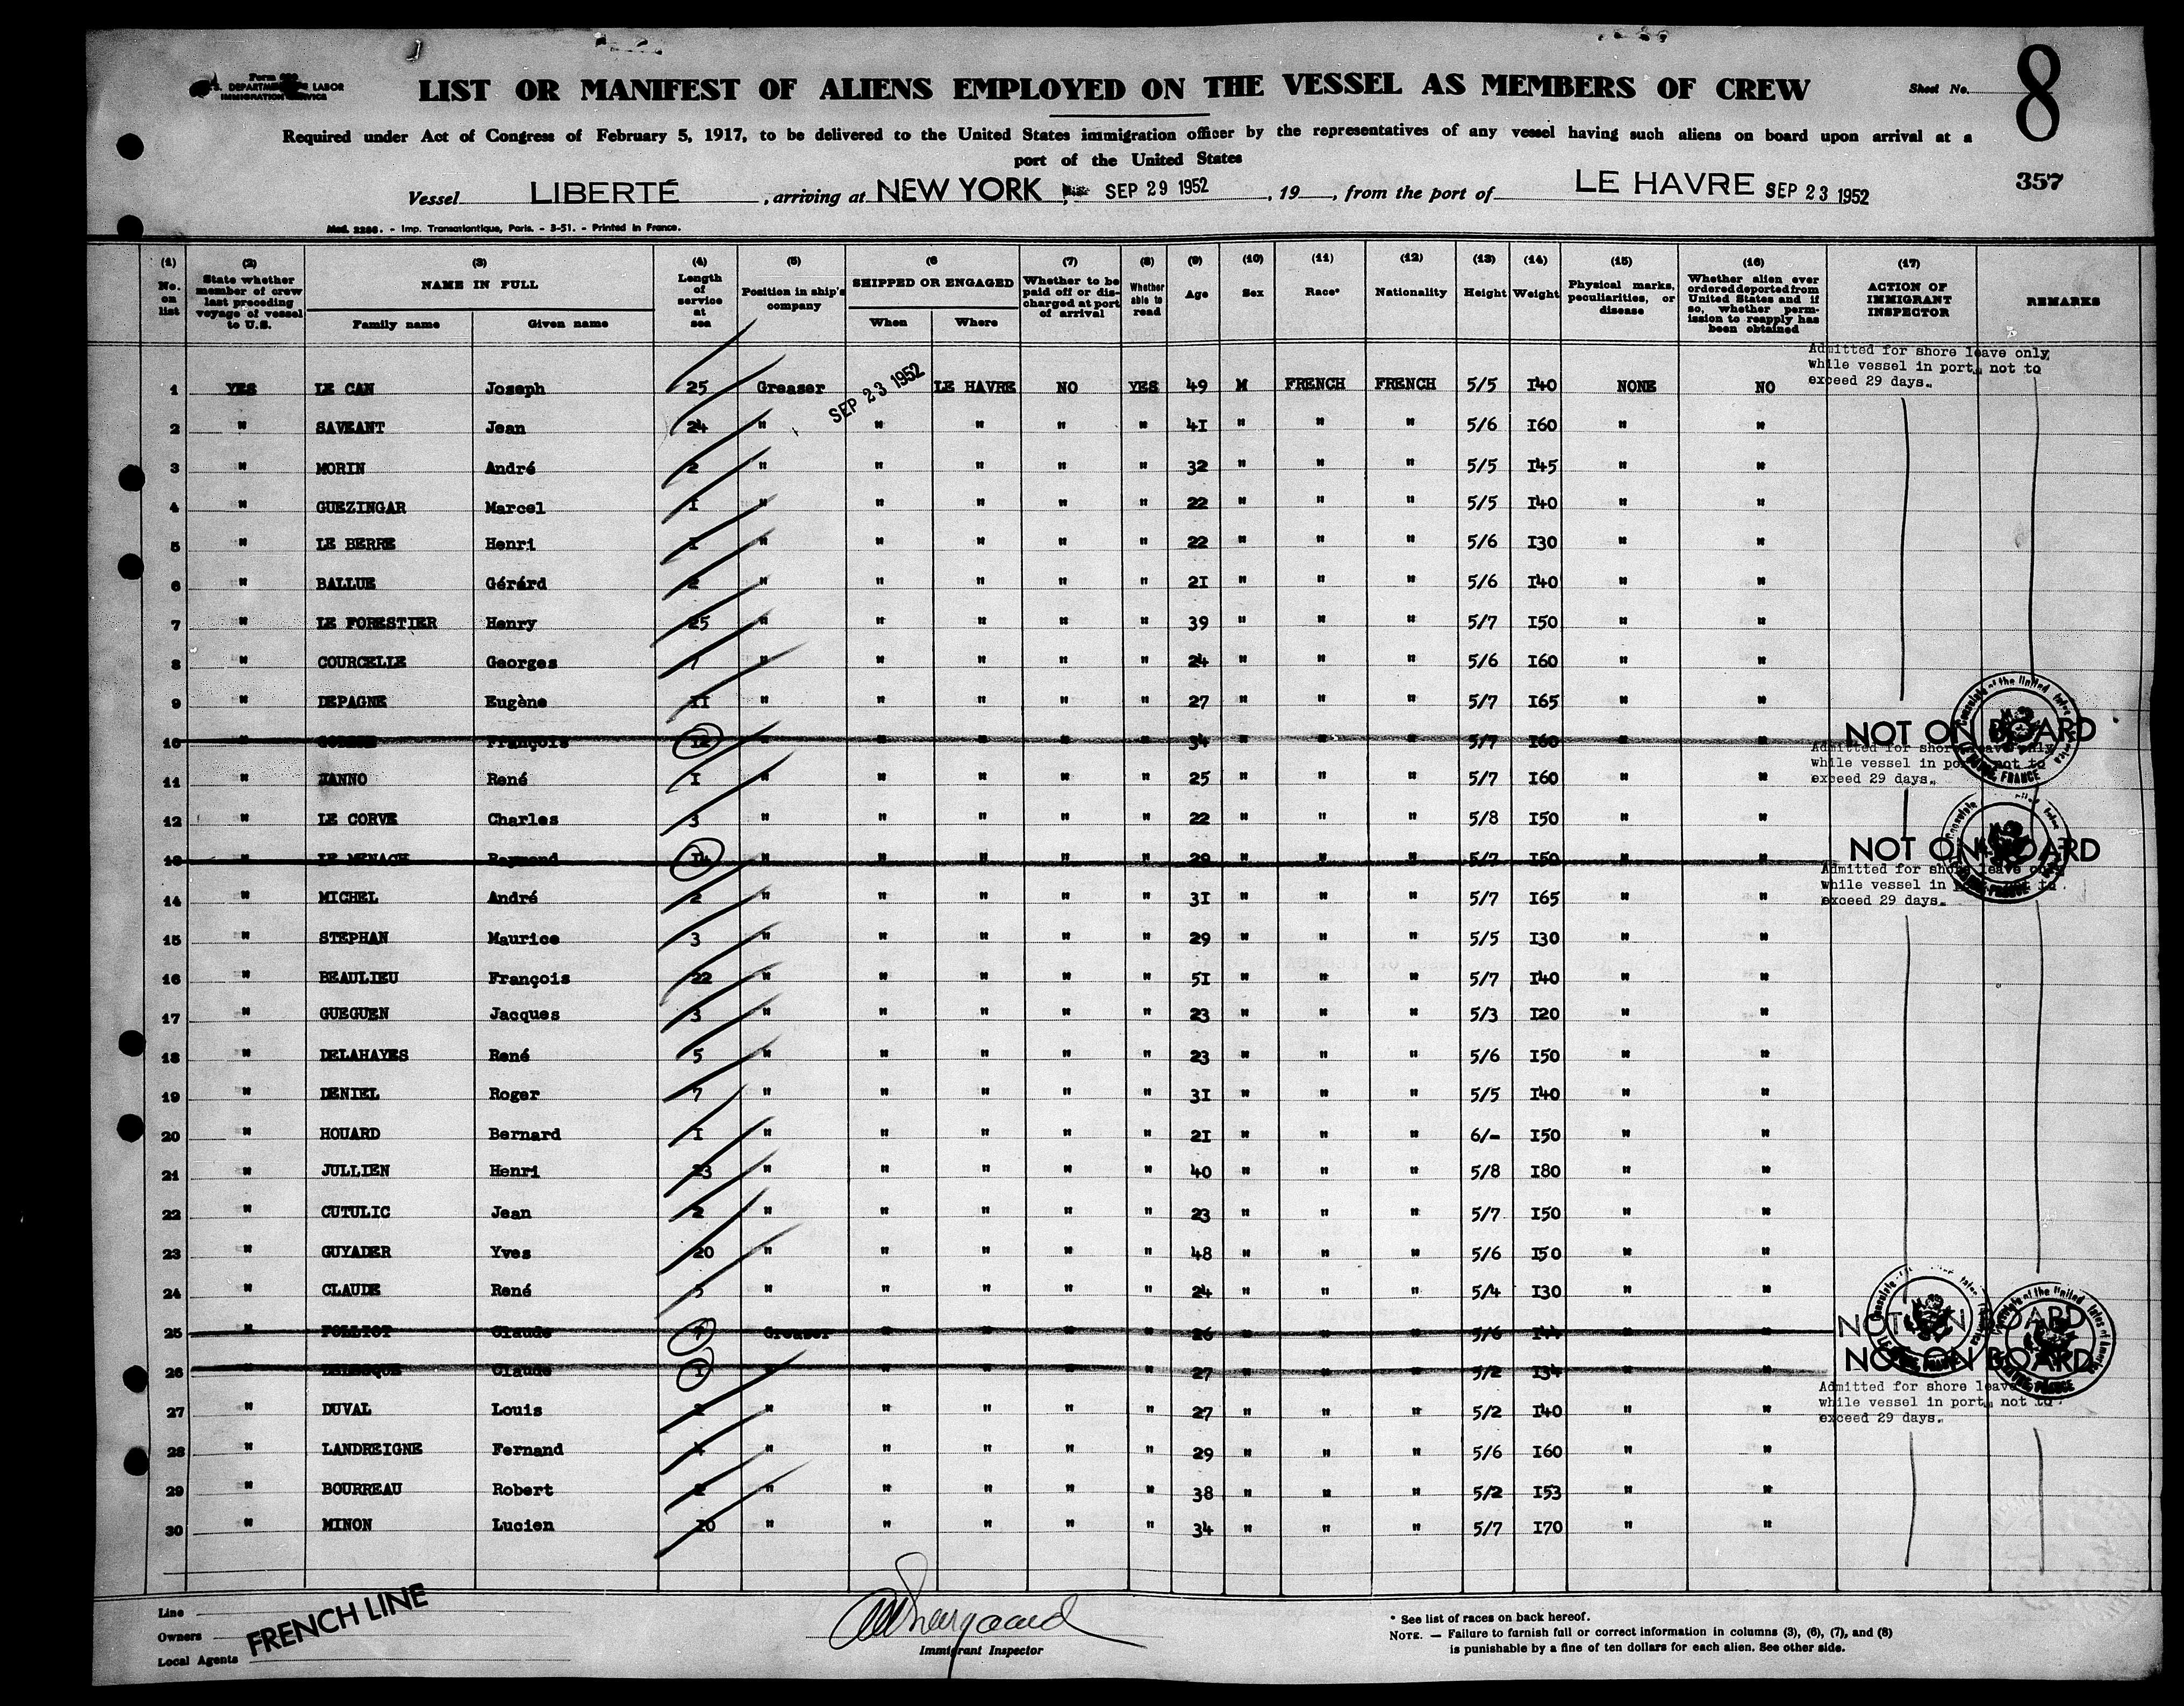 Form
U.S. DEPARTMENT OF LABOR
IMMIGRATION SERVICE
LIST OR MANIFEST OF ALIENS EMPLOYED ON THE VESSEL AS MEMBERS OF CREW
Sheet No. 8
Required under Act of Congress of February 5, 1917, to be delivered to the United States immigration officer by the representatives of any vessel having such aliens on board upon arrival at a
port of the United States
357
Vessel LIBERTÉ , arriving at NEW YORK, SEP 29 1952 , 19 , from the port of LE HAVRE SEP 23 1952
Mod. 2286. - Imp. Transatlantique, Paris. - 3-51. - Printed in France.
(1) No. on list (2) State whether member of crew last preceding voyage of vessel to U.S. (3) NAME IN FULL Family name Given name (4) Length of service at sea (5) Position in ship's company (6 SHIPPED OR ENGAGED When Where (7) Whether to be paid off or discharged at port of arrival (8) Whether able to read (9) Age (10) Sex (11) Race* (12) Nationality (13) Height (14) Weight (15) Physical marks, peculiarities, or disease (16) Whether alien ever ordered deported from United States and if so, whether permission to reapply has been obtained (17) ACTION OF IMMIGRANT INSPECTOR REMARKS
Admitted for shore leave only
while vessel in port, not to
exceed 29 days.
1 YES LE CAN Joseph 25 Greaser SEP 23 1952 LE HAVRE NO YES 49 M FRENCH FRENCH 5/5 I40 NONE NO
2 " SAVEANT Jean 24 " " " " " 41 " " " 5/6 I60 " "
3 " MORIN André 2 " " " " " 32 " " " 5/5 I45 " "
4 " GUEZINGAR Marcel I " " " " " 22 " " " 5/5 I40 " "
5 " LE BERRE Henri I " " " " " 22 " " " 5/6 I30 " "
6 " BALLUE Gérárd 2 " " " " " 2I " " " 5/6 I40 " "
7 " LE FORESTIER Henry 25 " " " " " 39 " " " 5/7 I50 " "
8 " COURCELLE Georges 7 " " " " " 24 " " " 5/6 I60 " "
9 " DEPAGNE Eugène II " " " " " 27 " " " 5/7 I65 " "
10 " François I2 " " " " " 34 " " " 5/7 I60 " " NOT ON BOARD
Admitted for shore leave only
while vessel in port, not to
exceed 29 days.
11 " JANNO René I " " " " " 25 " " " 5/7 I60 " "
12 " LE CORVE Charles 3 " " " " " 22 " " " 5/8 I50 " "
13 " LE MENACH Raymond I4 " " " " " 29 " " " 5/7 I50 " " NOT ON BOARD
Admitted for shore leave only
while vessel in port, not to
exceed 29 days.
14 " MICHEL André 2 " " " " " 3I " " " 5/7 I65 " "
15 " STEPHAN Maurice 3 " " " " " 29 " " " 5/5 I30 " "
16 " BEAULIEU François 22 " " " " " 5I " " " 5/7 I40 " "
17 " GUEGUEN Jacques 3 " " " " " 23 " " " 5/3 I20 " "
18 " DELAHAYES René 5 " " " " " 23 " " " 5/6 I50 " "
19 " DENIEL Roger 7 " " " " " 3I " " " 5/5 I40 " "
20 " HOUARD Bernard I " " " " " 2I " " " 6/- I50 " "
21 " JULLIEN Henri 23 " " " " " 40 " " " 5/8 I80 " "
22 " CUTULIC Jean 2 " " " " " 23 " " " 5/7 I50 " "
23 " GUYADER Yves 20 " " " " " 48 " " " 5/6 I50 " "
24 " CLAUDE René 5 " " " " " 24 " " " 5/4 I30 " "
25 " FOLLIOT Claude 7 Greaser " " " " 26 " " " 5/6 I44 " " NOT ON BOARD
26 " Claude I " " " " " 27 " " " 5/2 I34 " " NOT ON BOARD
Admitted for shore leave
while vessel in port, not to
exceed 29 days.
27 " DUVAL Louis 2 " " " " " 27 " " " 5/2 I40 " "
28 " LANDREIGNE Fernand 4 " " " " " 29 " " " 5/6 I60 " "
29 " BOURREAU Robert 2 " " " " " 38 " " " 5/2 I53 " "
30 " MINON Lucien I0 " " " " " 34 " " " 5/7 I70 " "
Line
Owners FRENCH LINE
Local Agents
Immigrant Inspector
* See list of races on back hereof.
NOTE. — Failure to furnish full or correct information in columns (3), (6), (7), and (8)
is punishable by a fine of ten dollars for each alien. See other side.